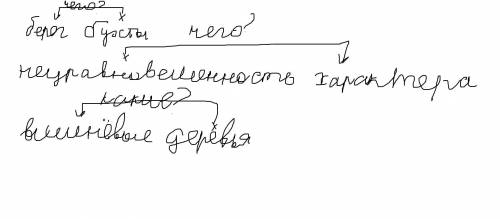 чего?
берег бухты чего?
неуравновешенность характера
какие?
вишнёвые деревья